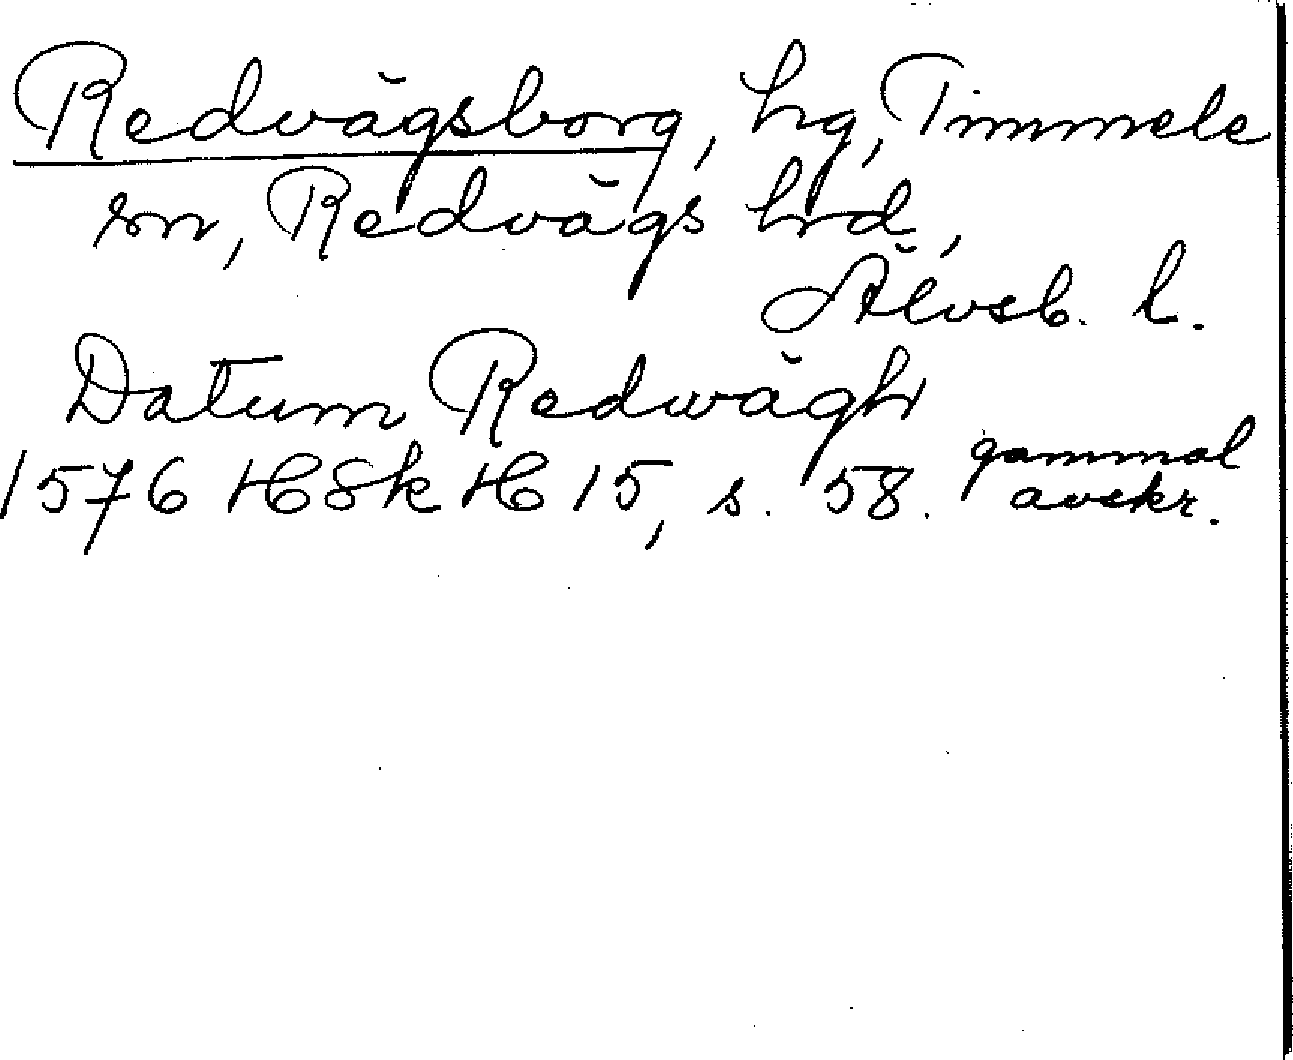 Redvägsborg, hg, Timmele
sn, Redvägs hrd,
Älvsb. l.
Datum Redwägh
1576 HSk H 15, s. 58. gammal
avskr.